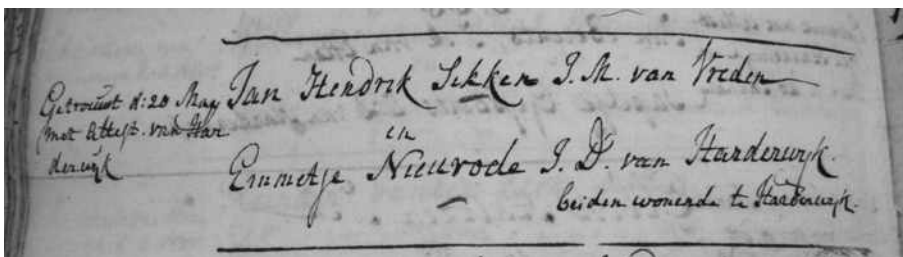 Getrouwt d: 20 May
met Attest. van Har
derwijk
Jan Hendrik Sikken J. M. van Vreden
en
Emmetje Nieurode J. D. van Harderwyk.
beiden wonende te Harderwyk.